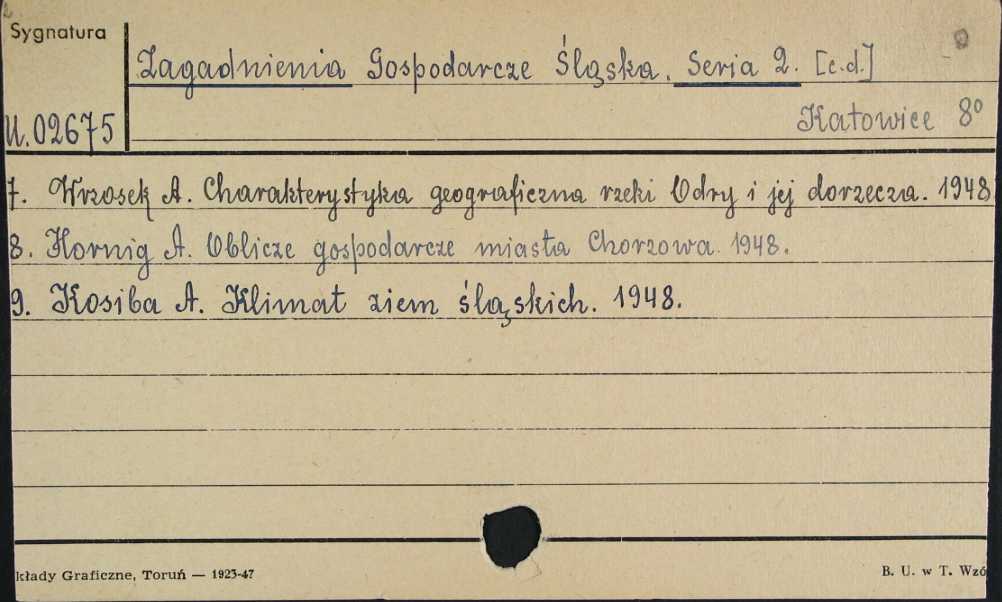 Sygnatura
Zagadnienia Gospodarcze Śląska. Seria 2. [c.d.]
U.02675
Katowice 8°
7. Wrzosek A. Charakterystyka geograficzna rzeki Odry i jej dorzecza. 1948
8. Hornig A. Oblicze gospodarcze miasta Chorzowa. 1948.
9. Kosiba A. Klimat ziem śląskich. 1948.
kłady Graficzne, Toruń — 1923-47
B. U. w T. Wzó